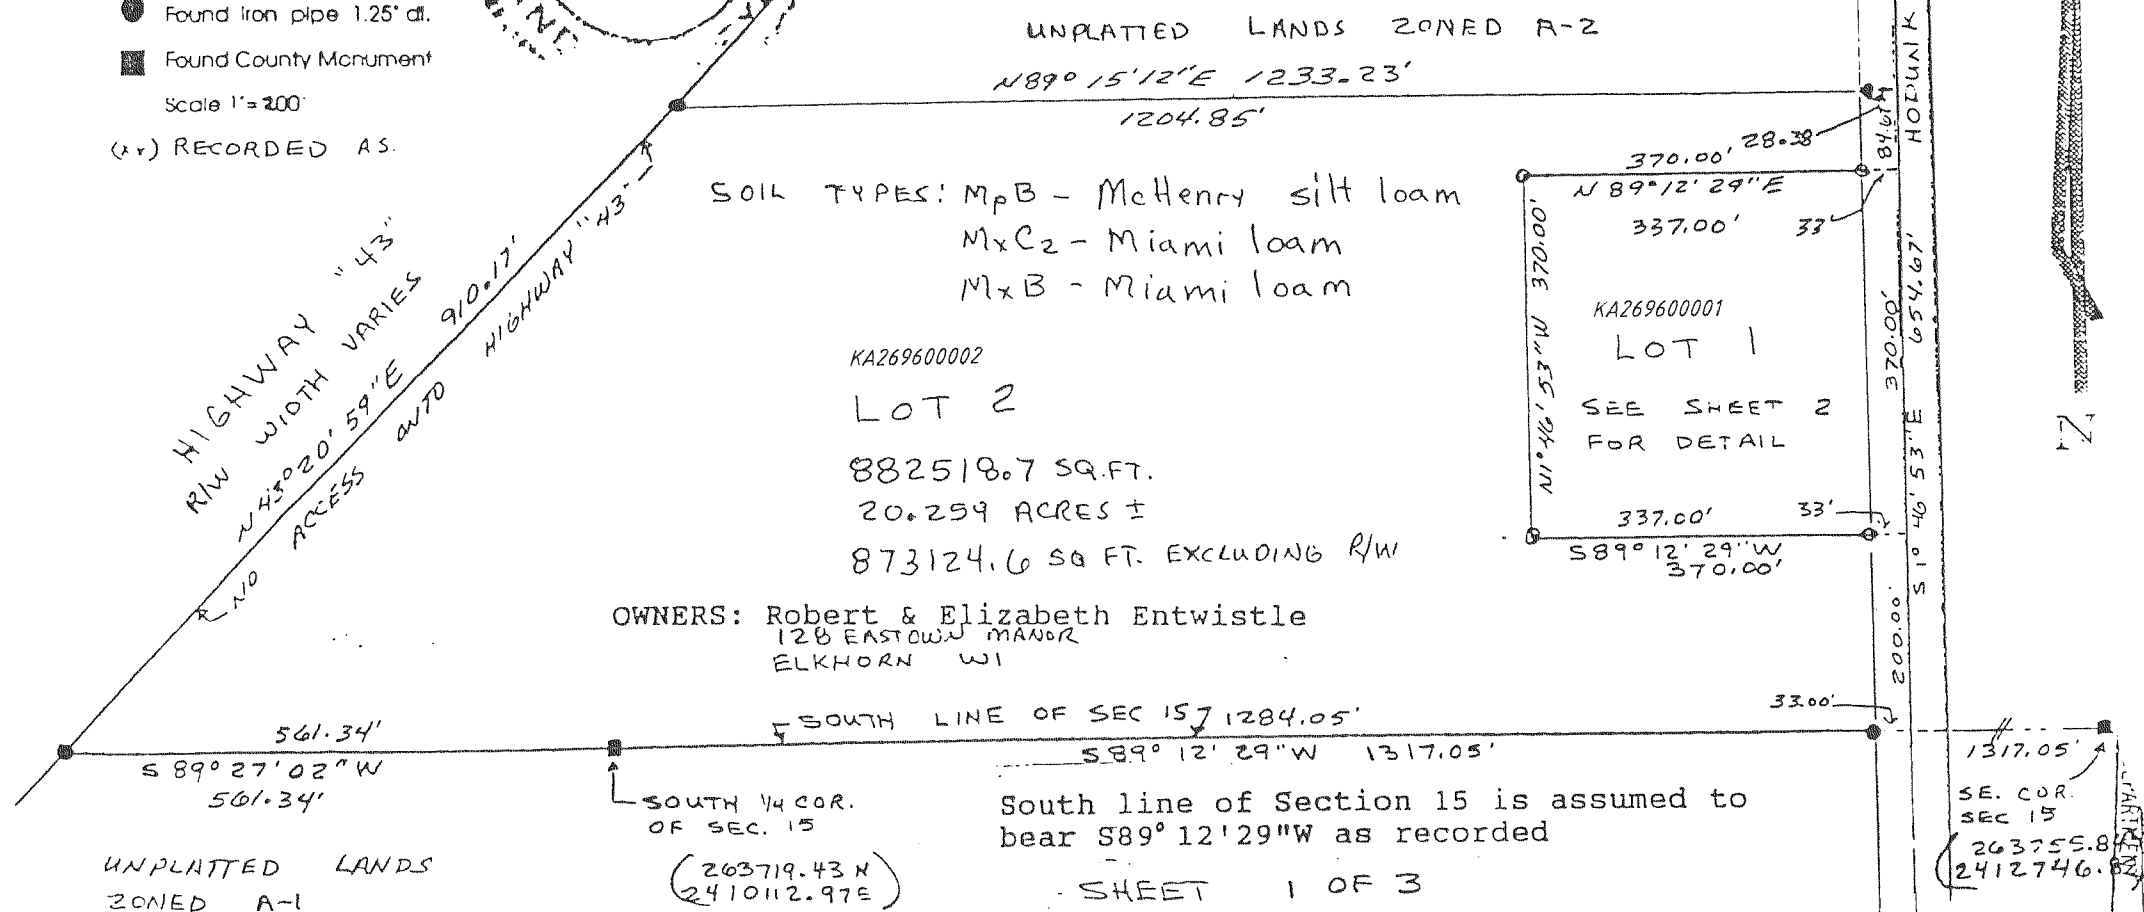 Found iron pipe 1.25" di.
Found County Monument
Scale 1"=200'
(xx) RECORDED AS.
UNPLATTED LANDS ZONED A-2
N89° 15'12"E 1233.23'
1204.85'
HIGHWAY "43"
R/W WIDTH VARIES
N 43°20' 59"E 910.17'
NO ACCESS ONTO HIGHWAY "43"
SOIL TYPES: MpB - McHenry silt loam
MxC2 - Miami loam
MxB - Miami loam
KA269600002
LOT 2
882518.7 SQ.FT.
20.259 ACRES ±
873124.6 SQ FT. EXCLUDING R/W
OWNERS: Robert & Elizabeth Entwistle
128 EASTOWN MANOR
ELKHORN WI
28.38
84.67
370.00'
N 89°12' 29"E
337.00'
33'
N1°46'53"W 370.00'
KA269600001
LOT 1
SEE SHEET 2
FOR DETAIL
337.00'
33'
S89°12' 29"W
370.00'
370.00'
200.00'
33.00'
HODUNK
S 1° 46' 53"E 654.67'
N
SOUTH LINE OF SEC 15
1284.05'
S89° 12' 29"W 1317.05'
561.34'
S 89°27'02"W
561.34'
SOUTH 1/4 COR.
OF SEC. 15
(263719.43 N
2410112.97E)
South line of Section 15 is assumed to
bear S89°12'29"W as recorded
1317.05'
SE. COR.
SEC 15
UNPLATTED LANDS
ZONED A-1
SHEET 1 OF 3